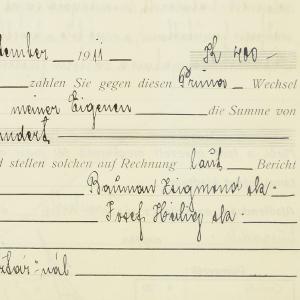 tember 1911 K 400-
zahlen Sie gegen diesen Prima Wechsel
meiner Eigenen die Summe von
hundert
d stellen solchen auf Rechnung laut Bericht
Bauman Zsigmond sk.
Josef Heilig sk.
nál